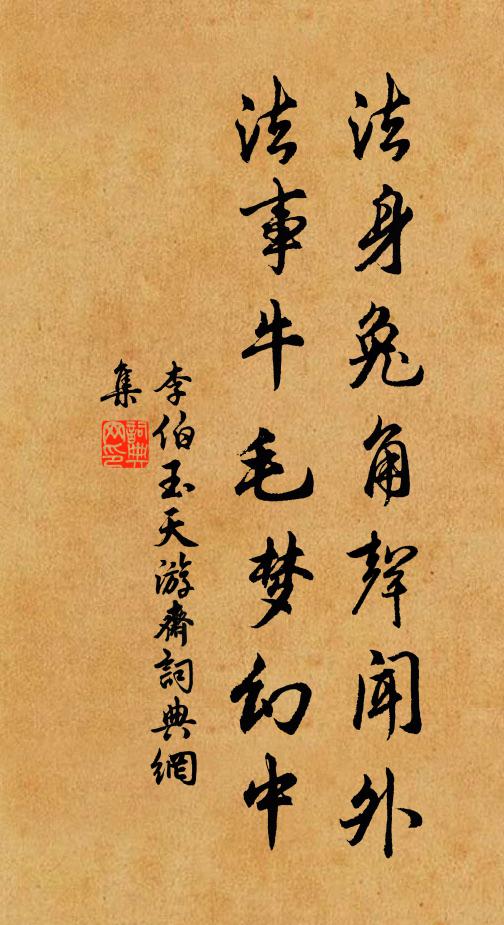 法身兔角聲闻外
法事牛毛梦幻中
李伯玉天游齋詞典網
集
詞典
网印